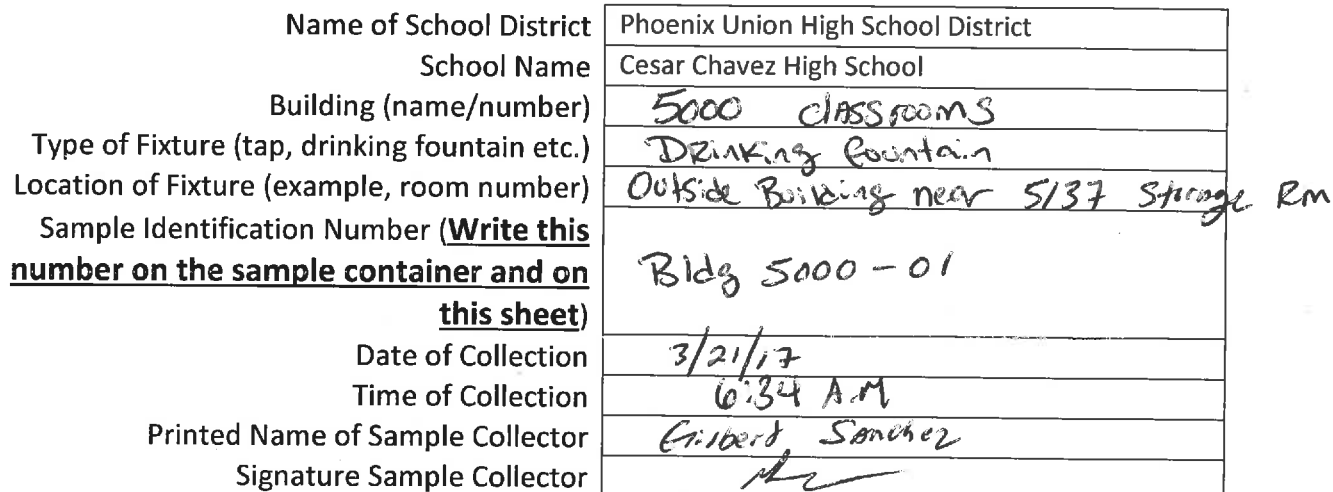 Name of School District Phoenix Union High School District
School Name Cesar Chavez High School
Building (name/number) 5000 classrooms
Type of Fixture (tap, drinking fountain etc.) Drinking fountain
Location of Fixture (example, room number) Outside Building near 5137 Storage Rm
Sample Identification Number (Write this
number on the sample container and on Bldg 5000-01
this sheet)
Date of Collection 3/21/17
Time of Collection 6:34 A.M
Printed Name of Sample Collector Gilbert Sanchez
Signature Sample Collector